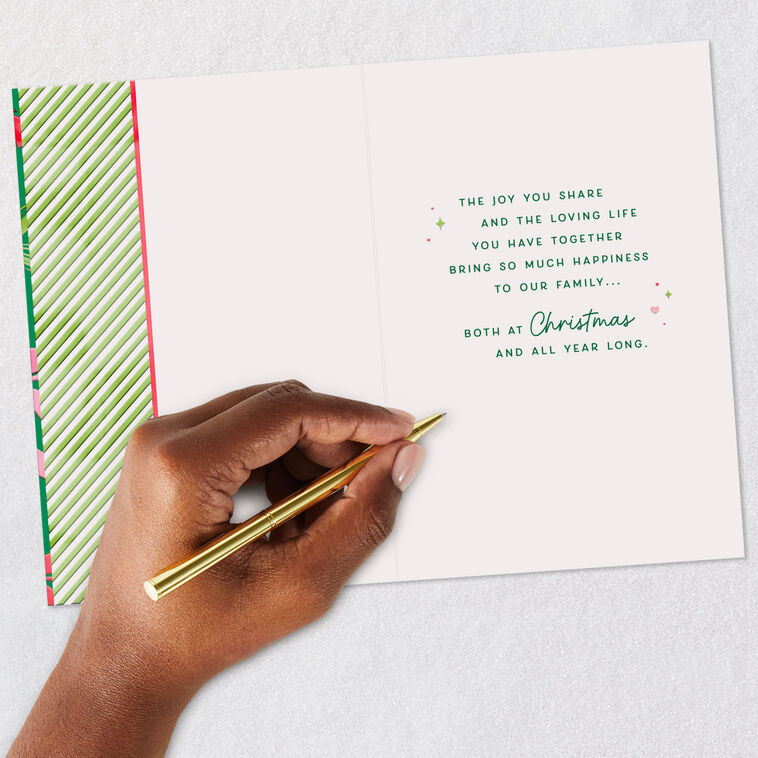 THE JOY YOU SHARE
AND THE LOVING LIFE
YOU HAVE TOGETHER
BRING SO MUCH HAPPINESS
TO OUR FAMILY...
BOTH AT Christmas
AND ALL YEAR LONG.